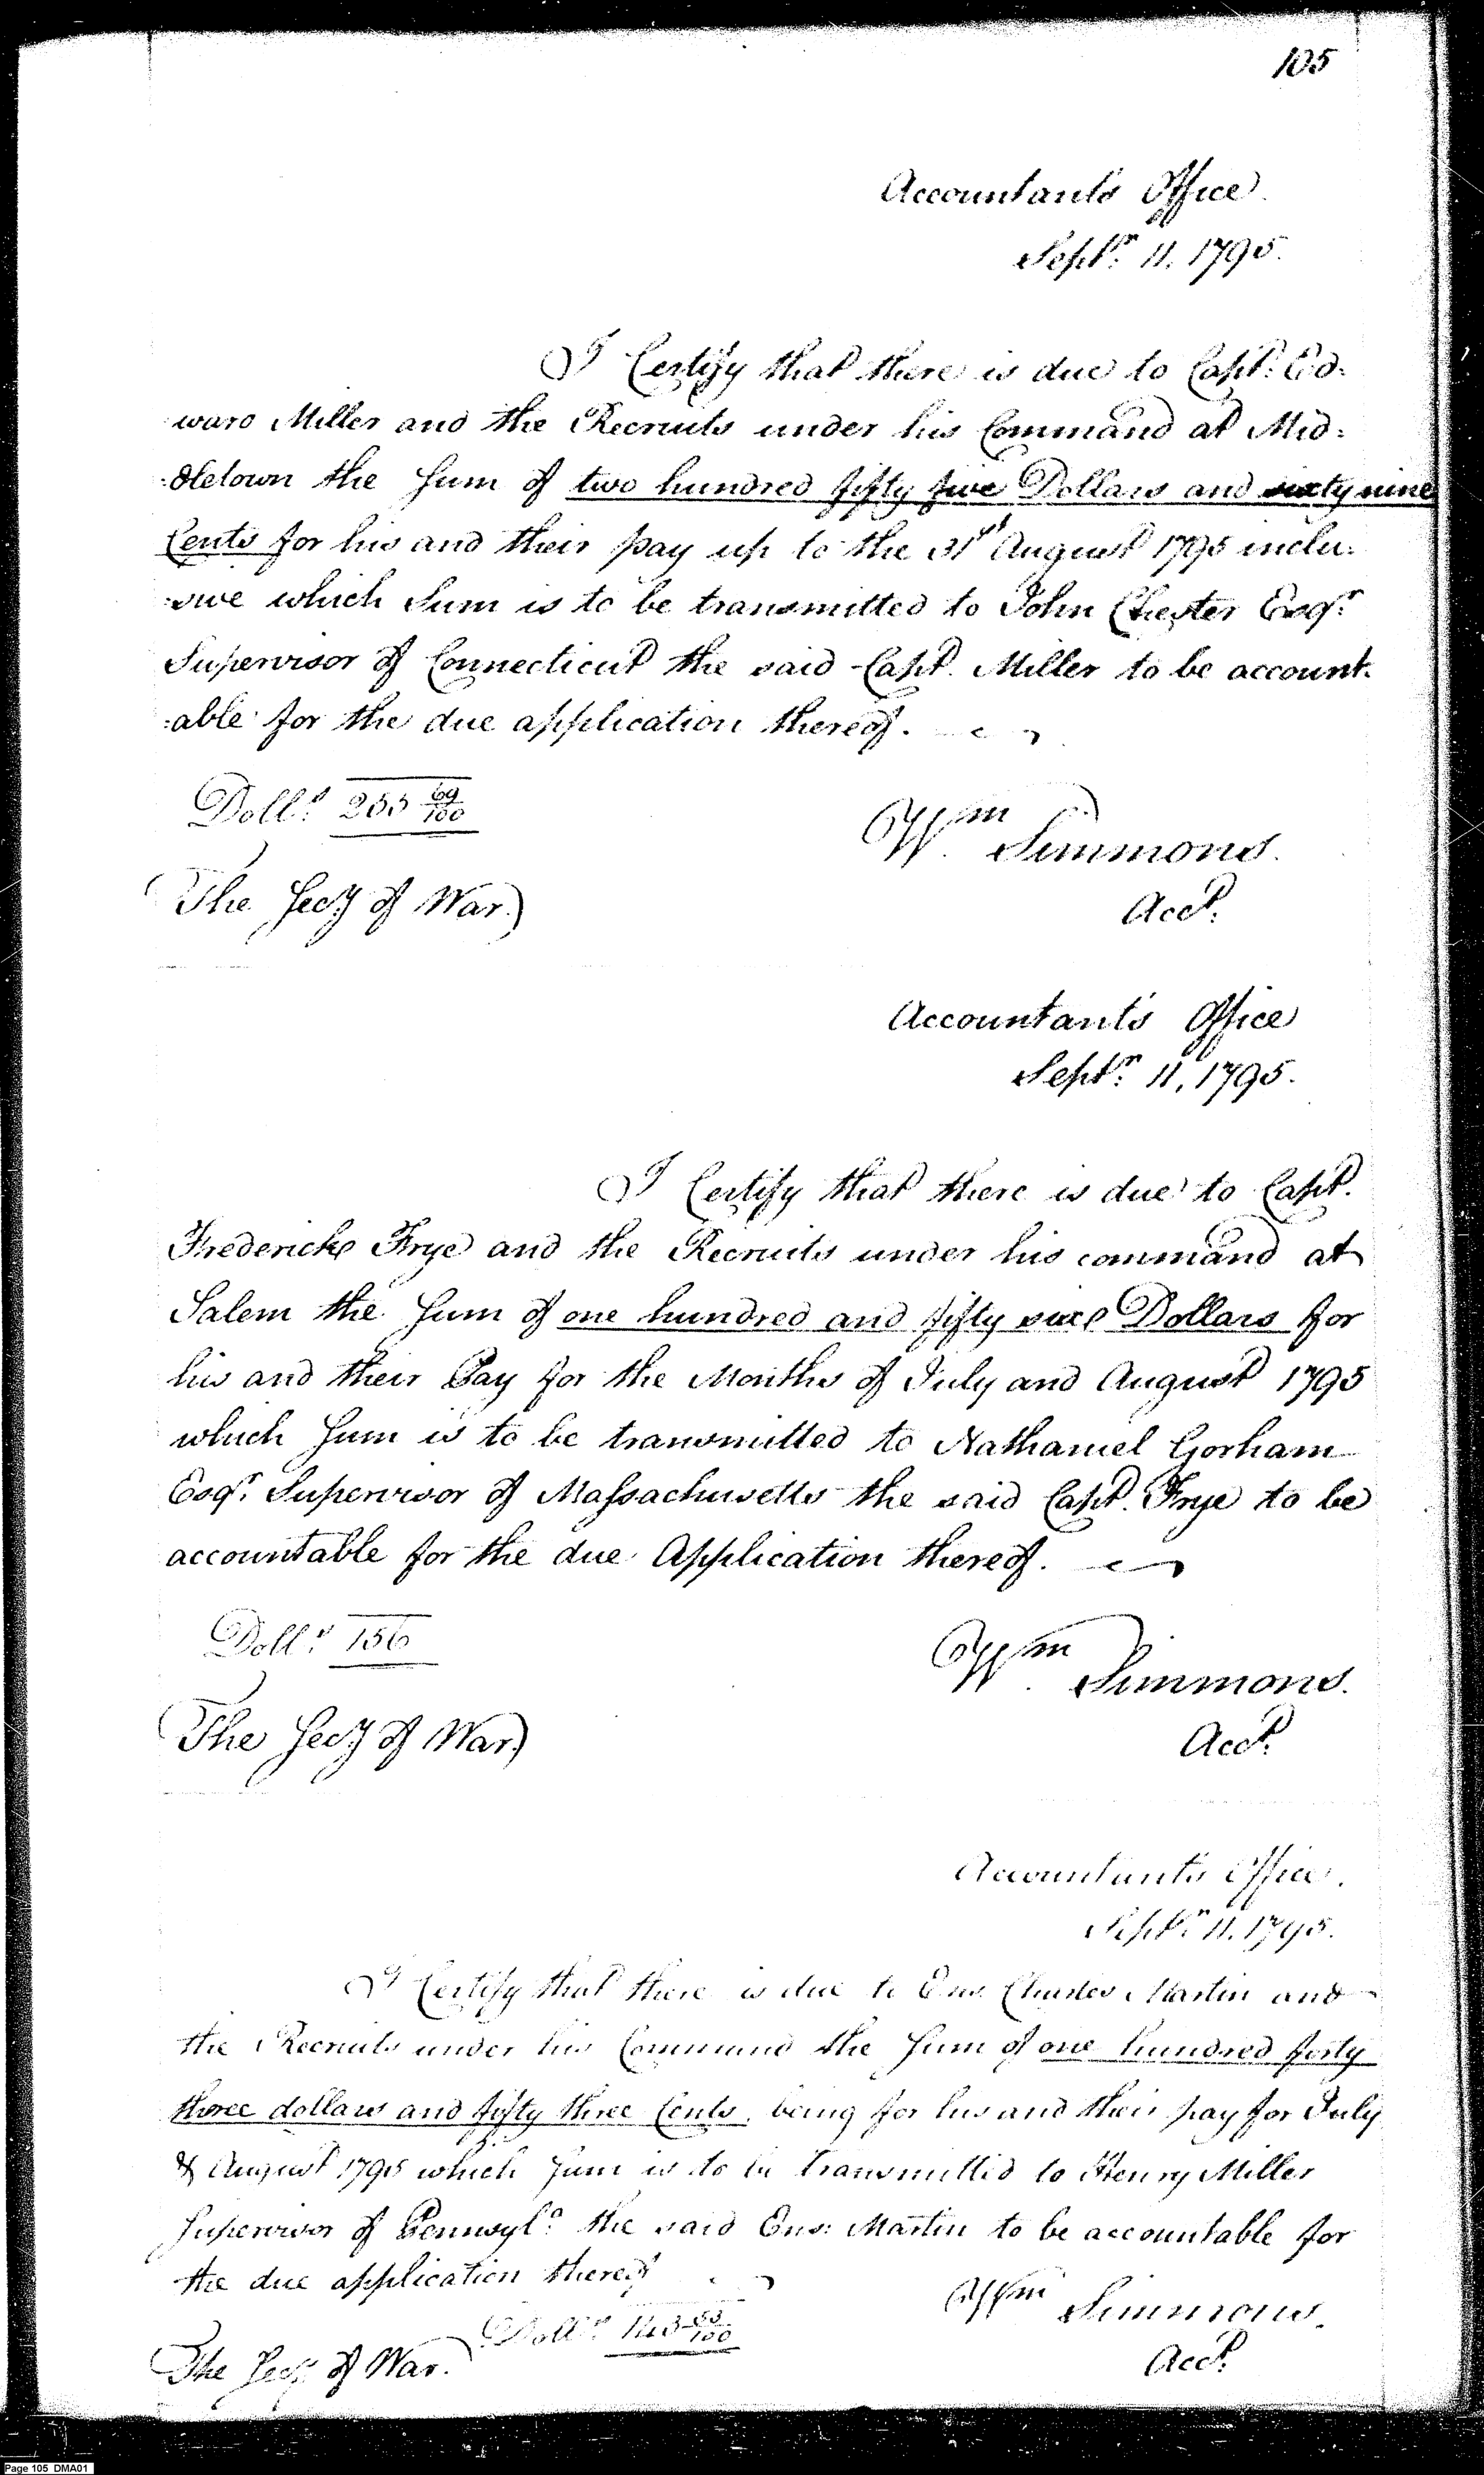 105
Accountants Office.
Septr. 11. 1795.
I Certify that there is due to Capt. Ed=
=ward Miller and the Recruits under his Command at Mid=
=dletown the Sum of two hundred fifty five Dollars and sixty nine
Cents for his and their pay up to the 31st August 1795 inclu=
=sive which Sum is to be transmitted to John Chester Esqr.
Supervisor of Connecticut the said Capt. Miller to be account=
=able for the due application thereof.
Dolls. 255 69/100
Wm Simmons.
The Secy of War.
Acct.
Accountant's Office
Septr. 11, 1795.
I Certify that there is due to Capt.
Frederick Frye and the Recruits under his command at
Salem the Sum of one hundred and fifty six Dollars for
his and their Pay for the Months of July and August 1795
which Sum is to be transmitted to Nathaniel Gorham
Esqr. Supervisor of Massachusetts the said Capt. Frye to be
accountable for the due Application thereof.
Dolls. 156
Wm Simmons.
The Secy of War
Acct.
Accountant's Office.
Septr. 11. 1795.
I Certify that there is due to Ens. Charles Martin and
the Recruits under his Command the Sum of one hundred forty
three dollars and fifty three Cents, being for his and their pay for July
& August 1795 which Sum is to be transmitted to Henry Miller
Supervisor of Pennsyla. the said Ens: Martin to be accountable for
the due application thereof
Wm Simmons.
Dolls. 143 53/100
The Secy of War.
Acct.
Page 105 DMA01